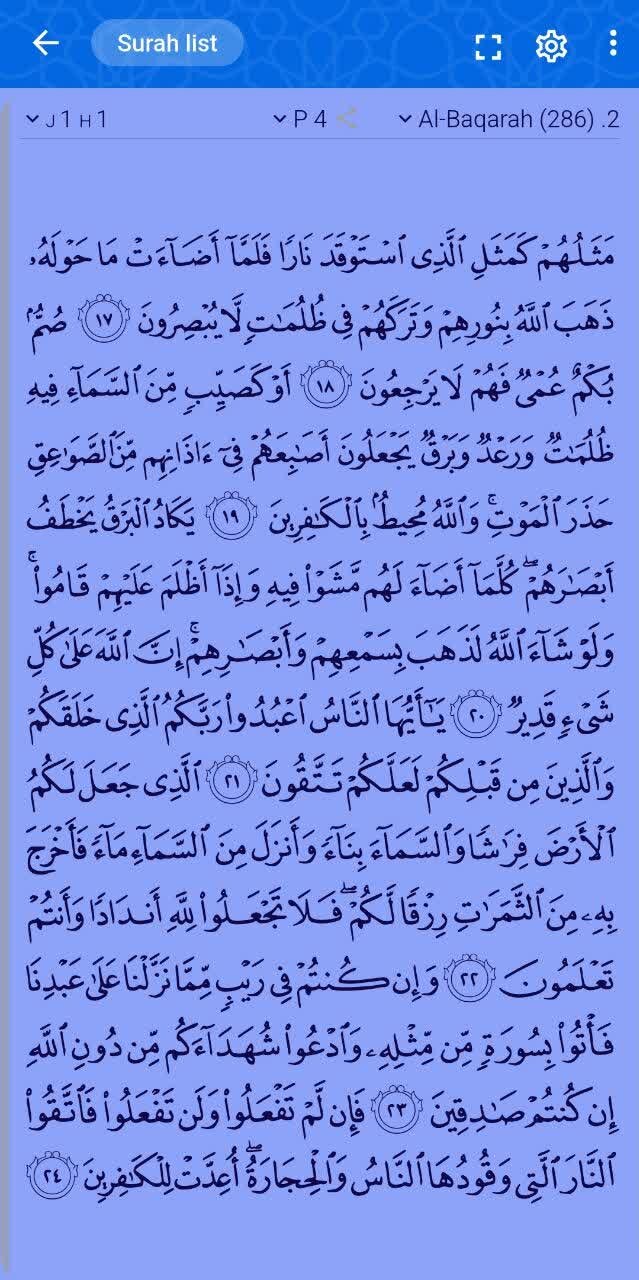 Surah list
J 1 H 1
P 4
Al-Baqarah (286) .2
مَثَلُهُمْ كَمَثَلِ ٱلَّذِى ٱسْتَوْقَدَ نَارًا فَلَمَّآ أَضَآءَتْ مَا حَوْلَهُۥ
ذَهَبَ ٱللَّهُ بِنُورِهِمْ وَتَرَكَهُمْ فِى ظُلُمَٰتٍ لَّا يُبْصِرُونَ ١٧ صُمٌّۢ
بُكْمٌ عُمْىٌ فَهُمْ لَا يَرْجِعُونَ ١٨ أَوْ كَصَيِّبٍ مِّنَ ٱلسَّمَآءِ فِيهِ
ظُلُمَٰتٌ وَرَعْدٌ وَبَرْقٌ يَجْعَلُونَ أَصَٰبِعَهُمْ فِىٓ ءَاذَانِهِم مِّنَ ٱلصَّوَٰعِقِ
حَذَرَ ٱلْمَوْتِ ۚ وَٱللَّهُ مُحِيطٌۢ بِٱلْكَٰفِرِينَ ١٩ يَكَادُ ٱلْبَرْقُ يَخْطَفُ
أَبْصَٰرَهُمْ ۖ كُلَّمَآ أَضَآءَ لَهُم مَّشَوْا۟ فِيهِ وَإِذَآ أَظْلَمَ عَلَيْهِمْ قَامُوا۟ ۚ
وَلَوْ شَآءَ ٱللَّهُ لَذَهَبَ بِسَمْعِهِمْ وَأَبْصَٰرِهِمْ ۚ إِنَّ ٱللَّهَ عَلَىٰ كُلِّ
شَىْءٍ قَدِيرٌ ٢٠ يَٰٓأَيُّهَا ٱلنَّاسُ ٱعْبُدُوا۟ رَبَّكُمُ ٱلَّذِى خَلَقَكُمْ
وَٱلَّذِينَ مِن قَبْلِكُمْ لَعَلَّكُمْ تَتَّقُونَ ٢١ ٱلَّذِى جَعَلَ لَكُمُ
ٱلْأَرْضَ فِرَٰشًا وَٱلسَّمَآءَ بِنَآءً وَأَنزَلَ مِنَ ٱلسَّمَآءِ مَآءً فَأَخْرَجَ
بِهِۦ مِنَ ٱلثَّمَرَٰتِ رِزْقًا لَّكُمْ ۖ فَلَا تَجْعَلُوا۟ لِلَّهِ أَندَادًا وَأَنتُمْ
تَعْلَمُونَ ٢٢ وَإِن كُنتُمْ فِى رَيْبٍ مِّمَّا نَزَّلْنَا عَلَىٰ عَبْدِنَا
فَأْتُوا۟ بِسُورَةٍ مِّن مِّثْلِهِۦ وَٱدْعُوا۟ شُهَدَآءَكُم مِّن دُونِ ٱللَّهِ
إِن كُنتُمْ صَٰدِقِينَ ٢٣ فَإِن لَّمْ تَفْعَلُوا۟ وَلَن تَفْعَلُوا۟ فَٱتَّقُوا۟
ٱلنَّارَ ٱلَّتِى وَقُودُهَا ٱلنَّاسُ وَٱلْحِجَارَةُ ۖ أُعِدَّتْ لِلْكَٰفِرِينَ ٢٤